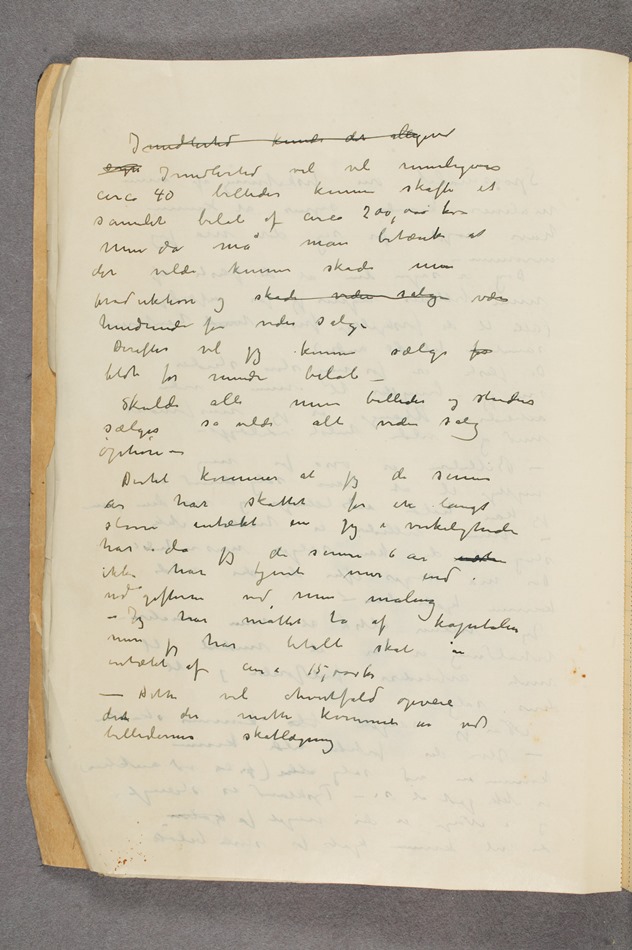 Imidlertid kunde det alligevel
Imidlertid vil vel rimeligvis
circa 40 billeder kunne skaffe et
samlet beløb af circa 200,000 kr
men da må man betænke at
det vilde kunne skade min
produktion og skade videre salg være
hindrende for videre salg.
Derefter vil jeg kunne sælge for
blot for mindre beløb –
Skulde alle mine billeder og studier
sælges så vilde alt videre salg
ophøre –
Dertil kommer at jeg de senere
år har skattet for en langt
større indtækt en jeg i virkeligheden
har. da jeg de senere 6 år
ikke har tjent mer end
udgifterne ved min maling
– Jeg har måttet ta af kapitalen
men jeg har betalt skat
indtækt af circa 15,000 kr
– Dette vil ihvertfald opveie
det der måtte komme ved
billedernes skatlægning